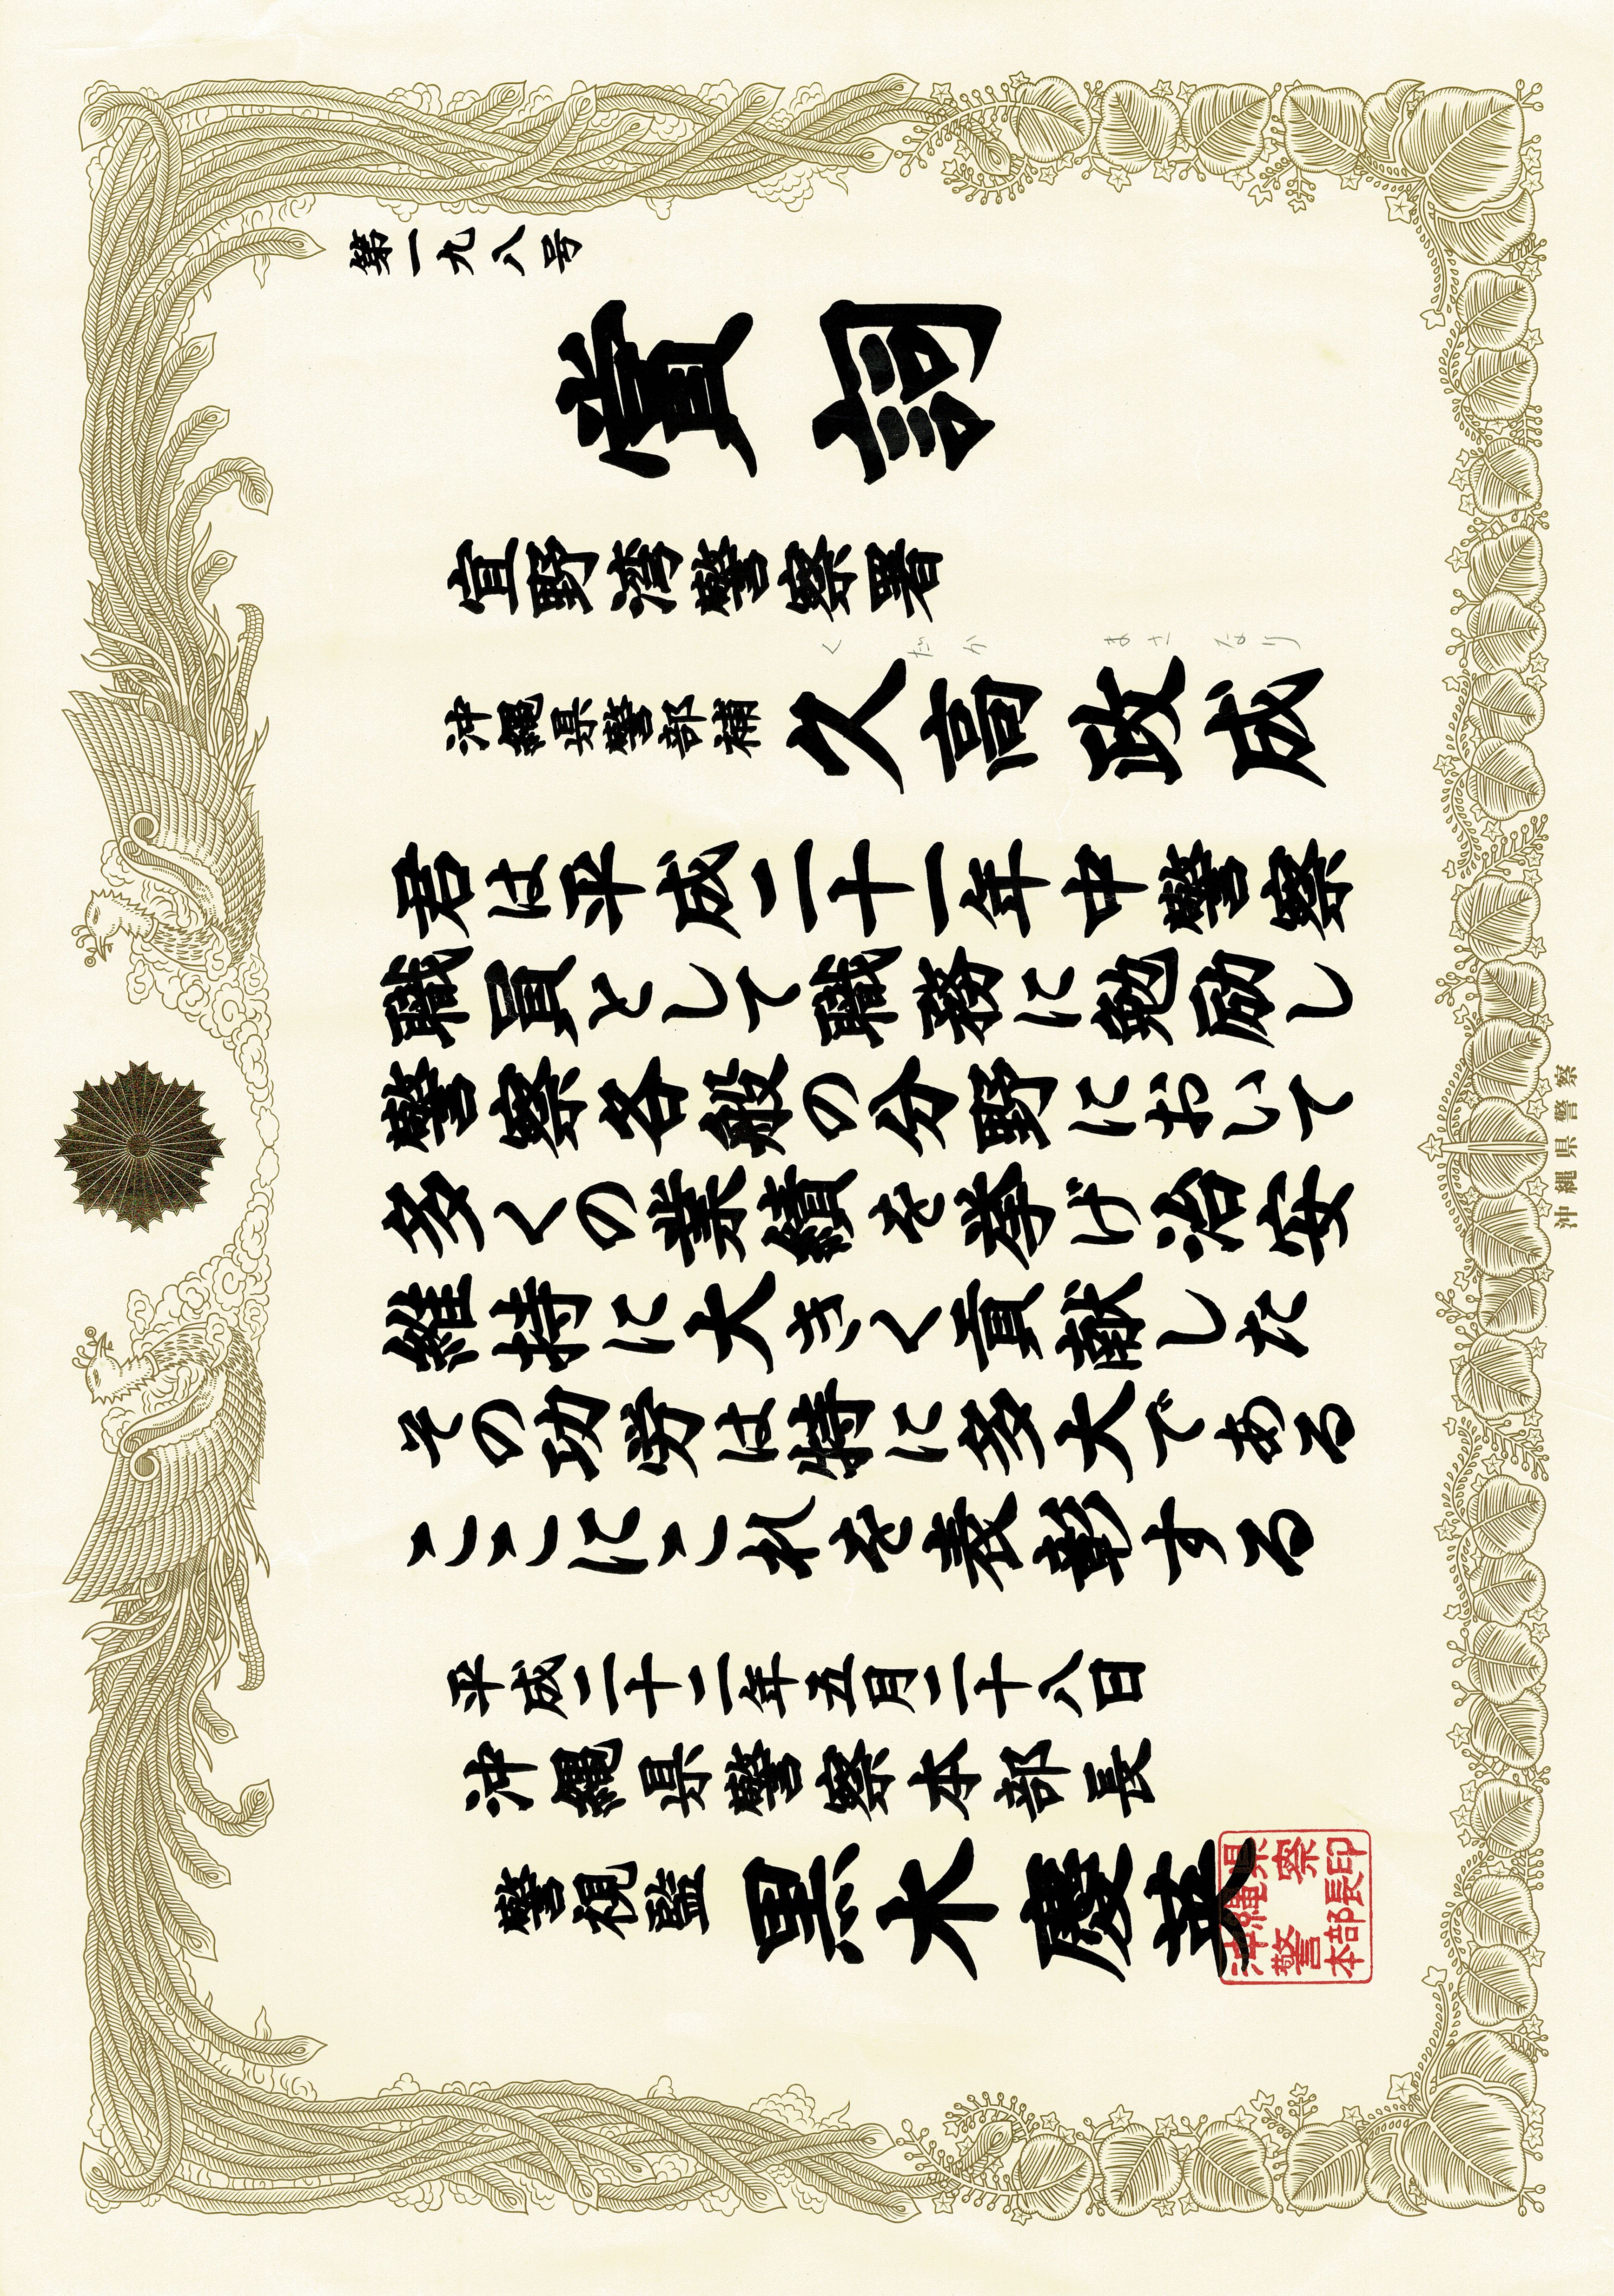 第一九八号
賞詞
宜野湾警察署
くだか まさなり
沖縄県警部補 久高政成
君は平成二十一年中警察
職員として職務に勉励し
警察各般の分野において
多くの業績を挙げ治安
維持に大きく貢献した
その功労は特に多大である
ここにこれを表彰する
平成二十二年五月二十八日
沖縄県警察本部長
警視監 黒木慶英
沖縄県
警察
本部長印
沖縄県警察